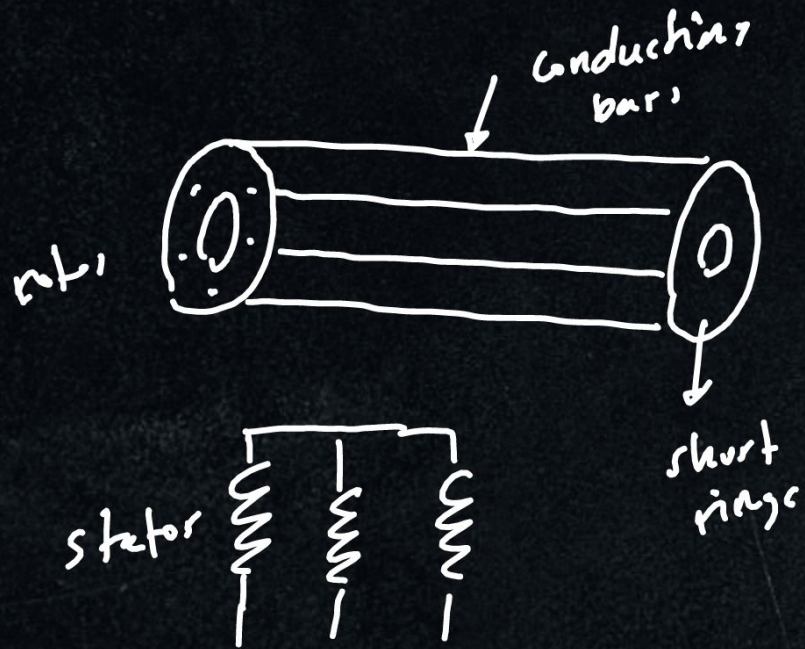 conducting
bars
rotor
short
rings
stator